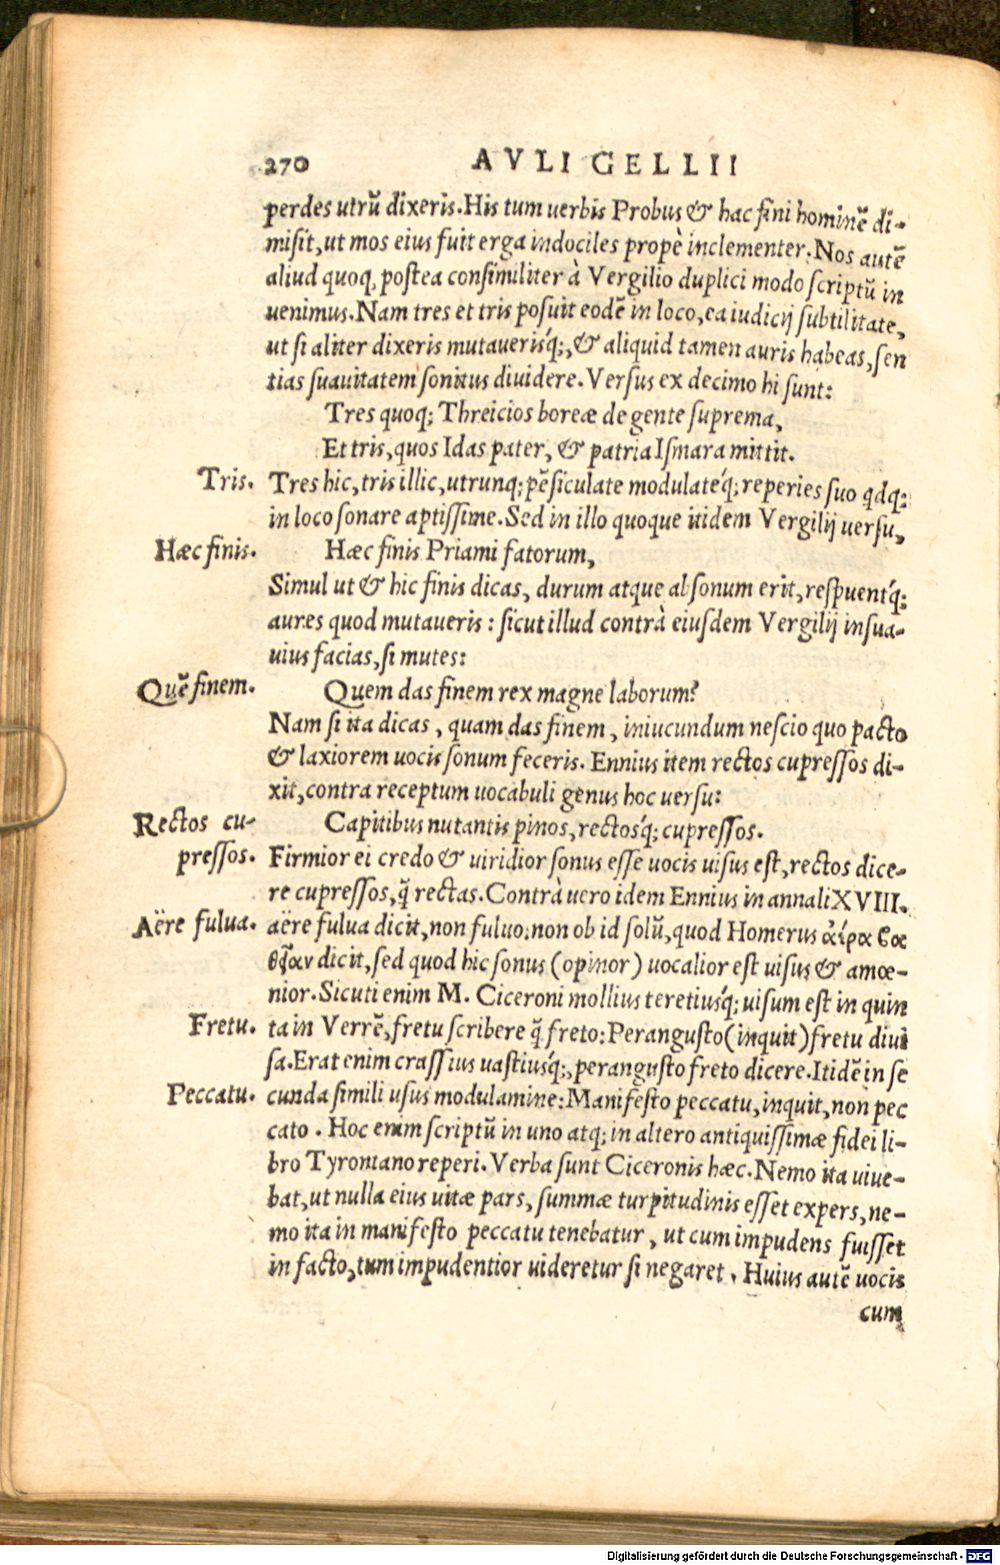 270 AVLI GELLII
perdes utrũ dixeris. His tum uerbis Probus & hac fini hominẽ di-
misit, ut mos eius fuit erga indociles propè inclementer. Nos autẽ
aliud quoq; postea consimiliter à Vergilio duplici modo scriptũ in
uenimus. Nam tres et tris posuit eodẽ in loco, ea iudicij subtilitate,
ut si aliter dixeris mutauerisq́;, & aliquid tamen auris habeas, sen
tias suauitatem sonitus diuidere. Versus ex decimo hi sunt:
Tres quoq; Threicios boreæ de gente suprema,
Et tris, quos Idas pater, & patria Ismara mittit.
Tris. Tres hic, tris illic, utrunq; pẽsiculate modulateq́; reperies suo qdq;
in loco sonare aptissime. Sed in illo quoque itidem Vergilij uersu,
Hæc finis. Hæc finis Priami fatorum,
Simul ut & hic finis dicas, durum atque absonum erit, respuentq́;
aures quod mutaueris: sicut illud contrà eiusdem Vergilij insua-
uius facias, si mutes:
Quẽ finem. Quem das finem rex magne laborum?
Nam si ita dicas, quam das finem, iniucundum nescio quo pacto
& laxiorem uocis sonum feceris. Ennius item rectos cupressos di-
xit, contra receptum uocabuli genus hoc uersu:
Rectos cu- Capitibus nutantis pinos, rectosq́; cupressos.
pressos. Firmior ei credo & uiridior sonus esse uocis uisus est, rectos dice-
re cupressos, q̃ rectas. Contrà uero idem Ennius in annali XVIII.
Aëre fulua. aëre fulua dicit, non fuluo: non ob id solũ, quod Homerus ἀέρα βαε
θεῖαν dicit, sed quod hic sonus (opinor) uocalior est uisus & amœ-
nior. Sicuti enim M. Ciceroni mollius teretiusq́; uisum est in quin
Fretu. ta in Verrẽ, fretu scribere q̃ freto: Perangusto (inquit) fretu diui
sa. Erat enim crassius uastiusq́;, perangusto freto dicere. Itidẽ in se
Peccatu. cunda simili usus modulamine: Manifesto peccatu, inquit, non pec
cato. Hoc enim scriptũ in uno atq; in altero antiquissimæ fidei li-
bro Tyroniano reperi. Verba sunt Ciceronis hæc. Nemo ita uiue-
bat, ut nulla eius uitæ pars, summæ turpitudinis esset expers, ne-
mo ita in manifesto peccatu tenebatur, ut cum impudens fuisset
in facto, tum impudentior uideretur si negaret. Huius autẽ uocis
cum
Digitalisierung gefördert durch die Deutsche Forschungsgemeinschaft - DFG